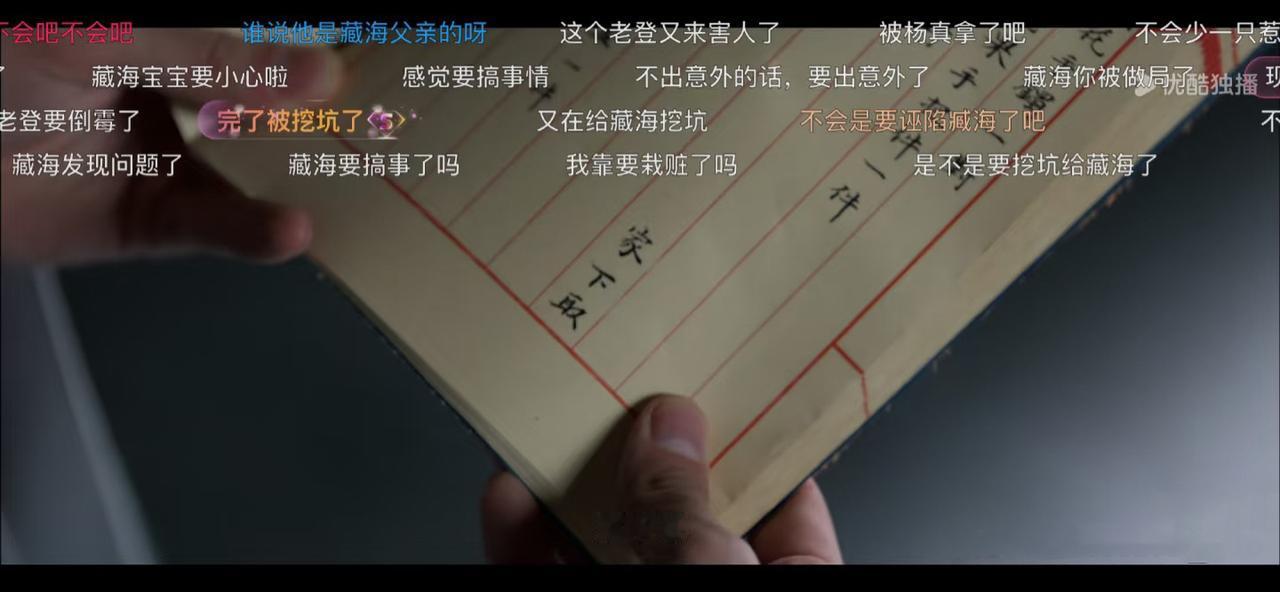 不会吧不会吧
谁说他是藏海父亲的呀
这个老登又来害人了
被杨真拿了吧
不会少一只惹
藏海宝宝要小心啦
感觉要搞事情
不出意外的话，要出意外了
藏海你被做局了
优酷独播
现
老登要倒霉了
完了被挖坑了 5
又在给藏海挖坑
不会是要诬陷臧海了吧
不
藏海发现问题了
藏海要搞事了吗
我靠要栽赃了吗
是不是要挖坑给藏海了
花
来
手
一件
件
一件
家下取